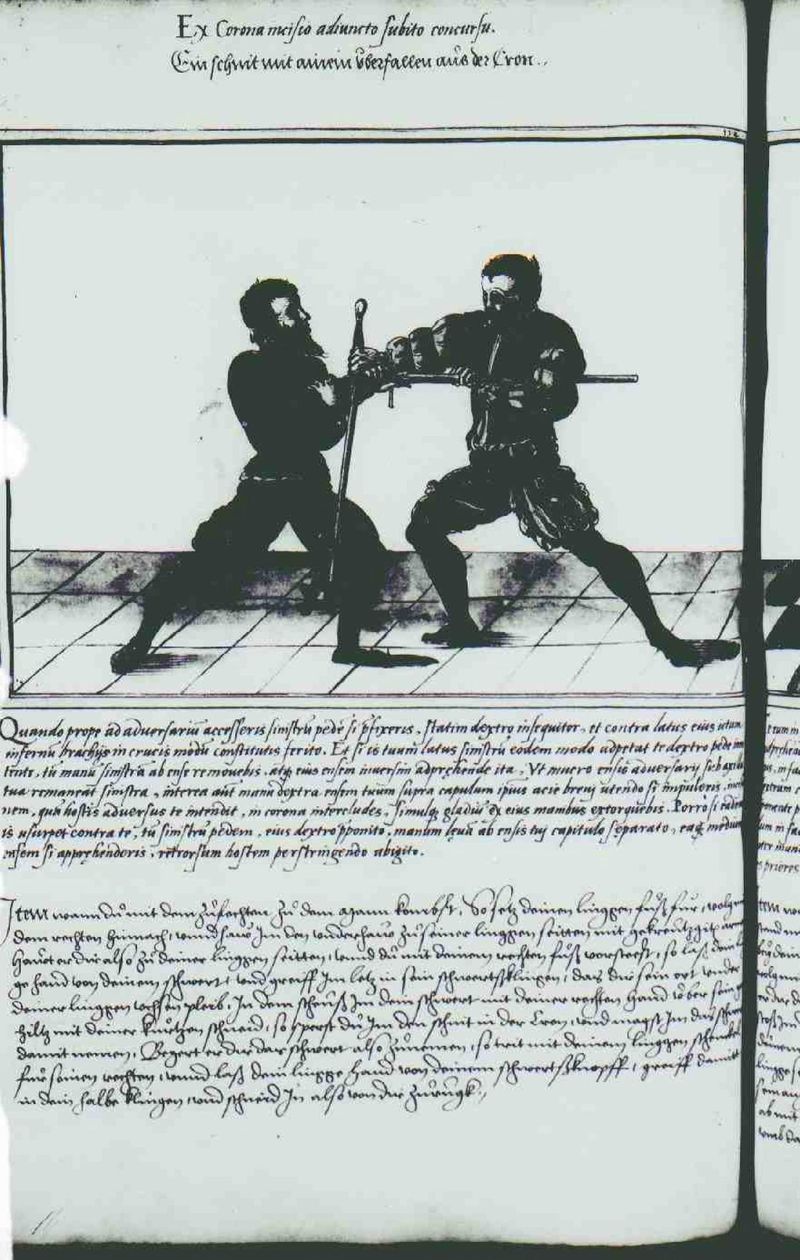 Ex Corona incisio adiuncto subito concursu.
Ein schnit mit ainem überfallen aus der Cron..
114
Quando prope ad adversariũ accesseris sinistrũ pedẽ si p̃fixeris, statim dextro insequitor, et contra latus eius
infernũ brachijs in crucis modũ constitutis ferito. Et si is tuum latus sinistrũ eodem modo adpetat te dextro pede
tu manu sinistra ab ense removebis, atq eius ensem inversim adprehende ita, Ut mucro ensis adversarij sub axilla
tua remaneat sinistra, interea aũt manu dextra ensem tuum supra capulum ipsius acie brevi utendo si impuleris,
nem, quã hostis adversus te intendit, in corona intercludes, simulq gladiũ ex eius manibus extorquebis. Porro si
is usurpet contra te, tu sinistrũ pedem, eius dextro opponito, manum leva ab ensis tuj capitulo separato, eaq medium
ensem si apprehenderis, retrorsum hostem perstringendo abigito.
Item wann du mit dem zůfechten zů dem Mann kombst, So setz deinen linggen fůß für, volg
dem rechten hinnach, unnd haw Im den underhaw zů seiner linggen seitten mit gekreutzgit
Hawet er dir also zů deiner linggen seitten, unnd du mit deinem rechten fůß vorsteest, so laß dein
ge hand von deinem schwert, und greiff Im letz in sein schwertsklingen, das dir sein ort under
deiner linggen vchsen pleib, In dem scheuß Im dein schwert mit deiner rechten Hand über sein
hiltz mit deiner kurtzen schneid, so sperst du Im den schnit in der Cron, und magst Im das
damit nemen, Begert er dir das schwert also zůnemen, so trit mit deinem linggen schenckel
für seinen rechten, unnd laß dein lingge hand von deinem schwertsknopff, greiff damit
in dein halbe klingen, und schneid In also von dir zůrugk.